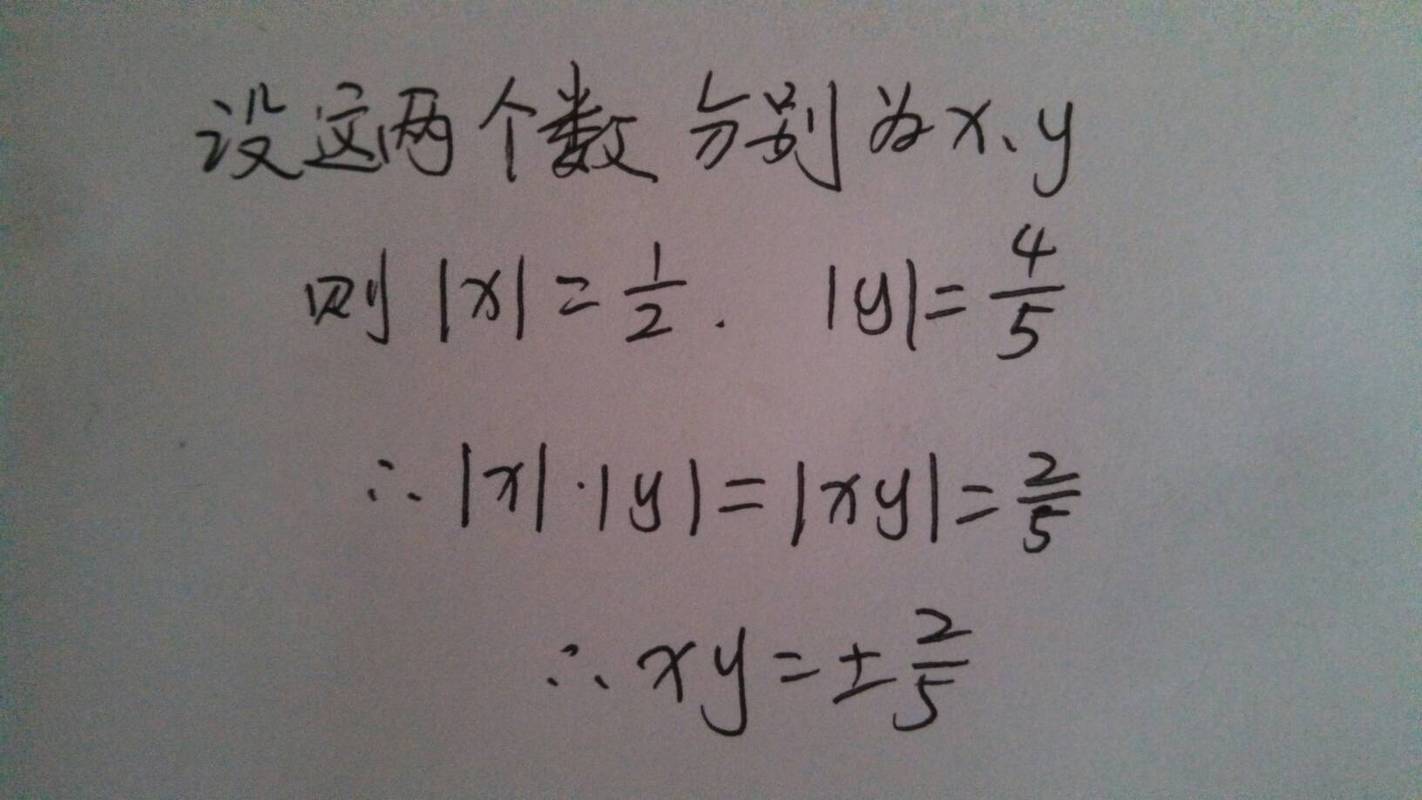 设这两个数分别为x、y
则 |x| = 1/2. |y| = 4/5
∴ |x|·|y| = |xy| = 2/5
∴ xy = ±2/5